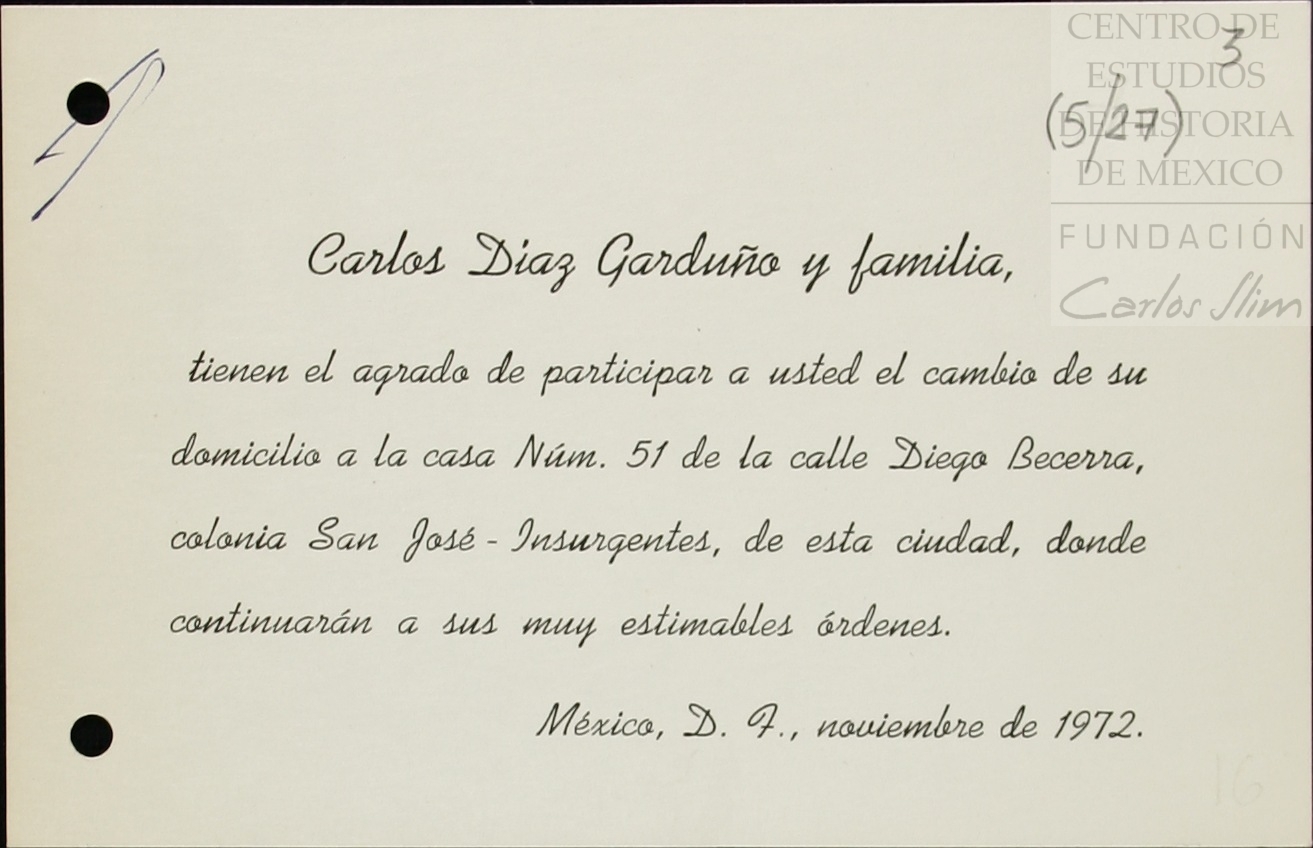 CENTRO DE
ESTUDIOS
DE HISTORIA
DE MEXICO
FUNDACIÓN
Carlos Slim
3
(5/27)
Carlos Diaz Garduño y familia,
tienen el agrado de participar a usted el cambio de su
domicilio a la casa Núm. 51 de la calle Diego Becerra,
colonia San José - Insurgentes, de esta ciudad, donde
continuarán a sus muy estimables órdenes.
México, D. F., noviembre de 1972.
16